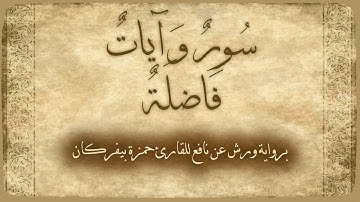 سُوَرٌ وَآيَاتٌ
فَاضِلَةٌ
برواية ورش عن نافع للقارئ حمزة بيفركان